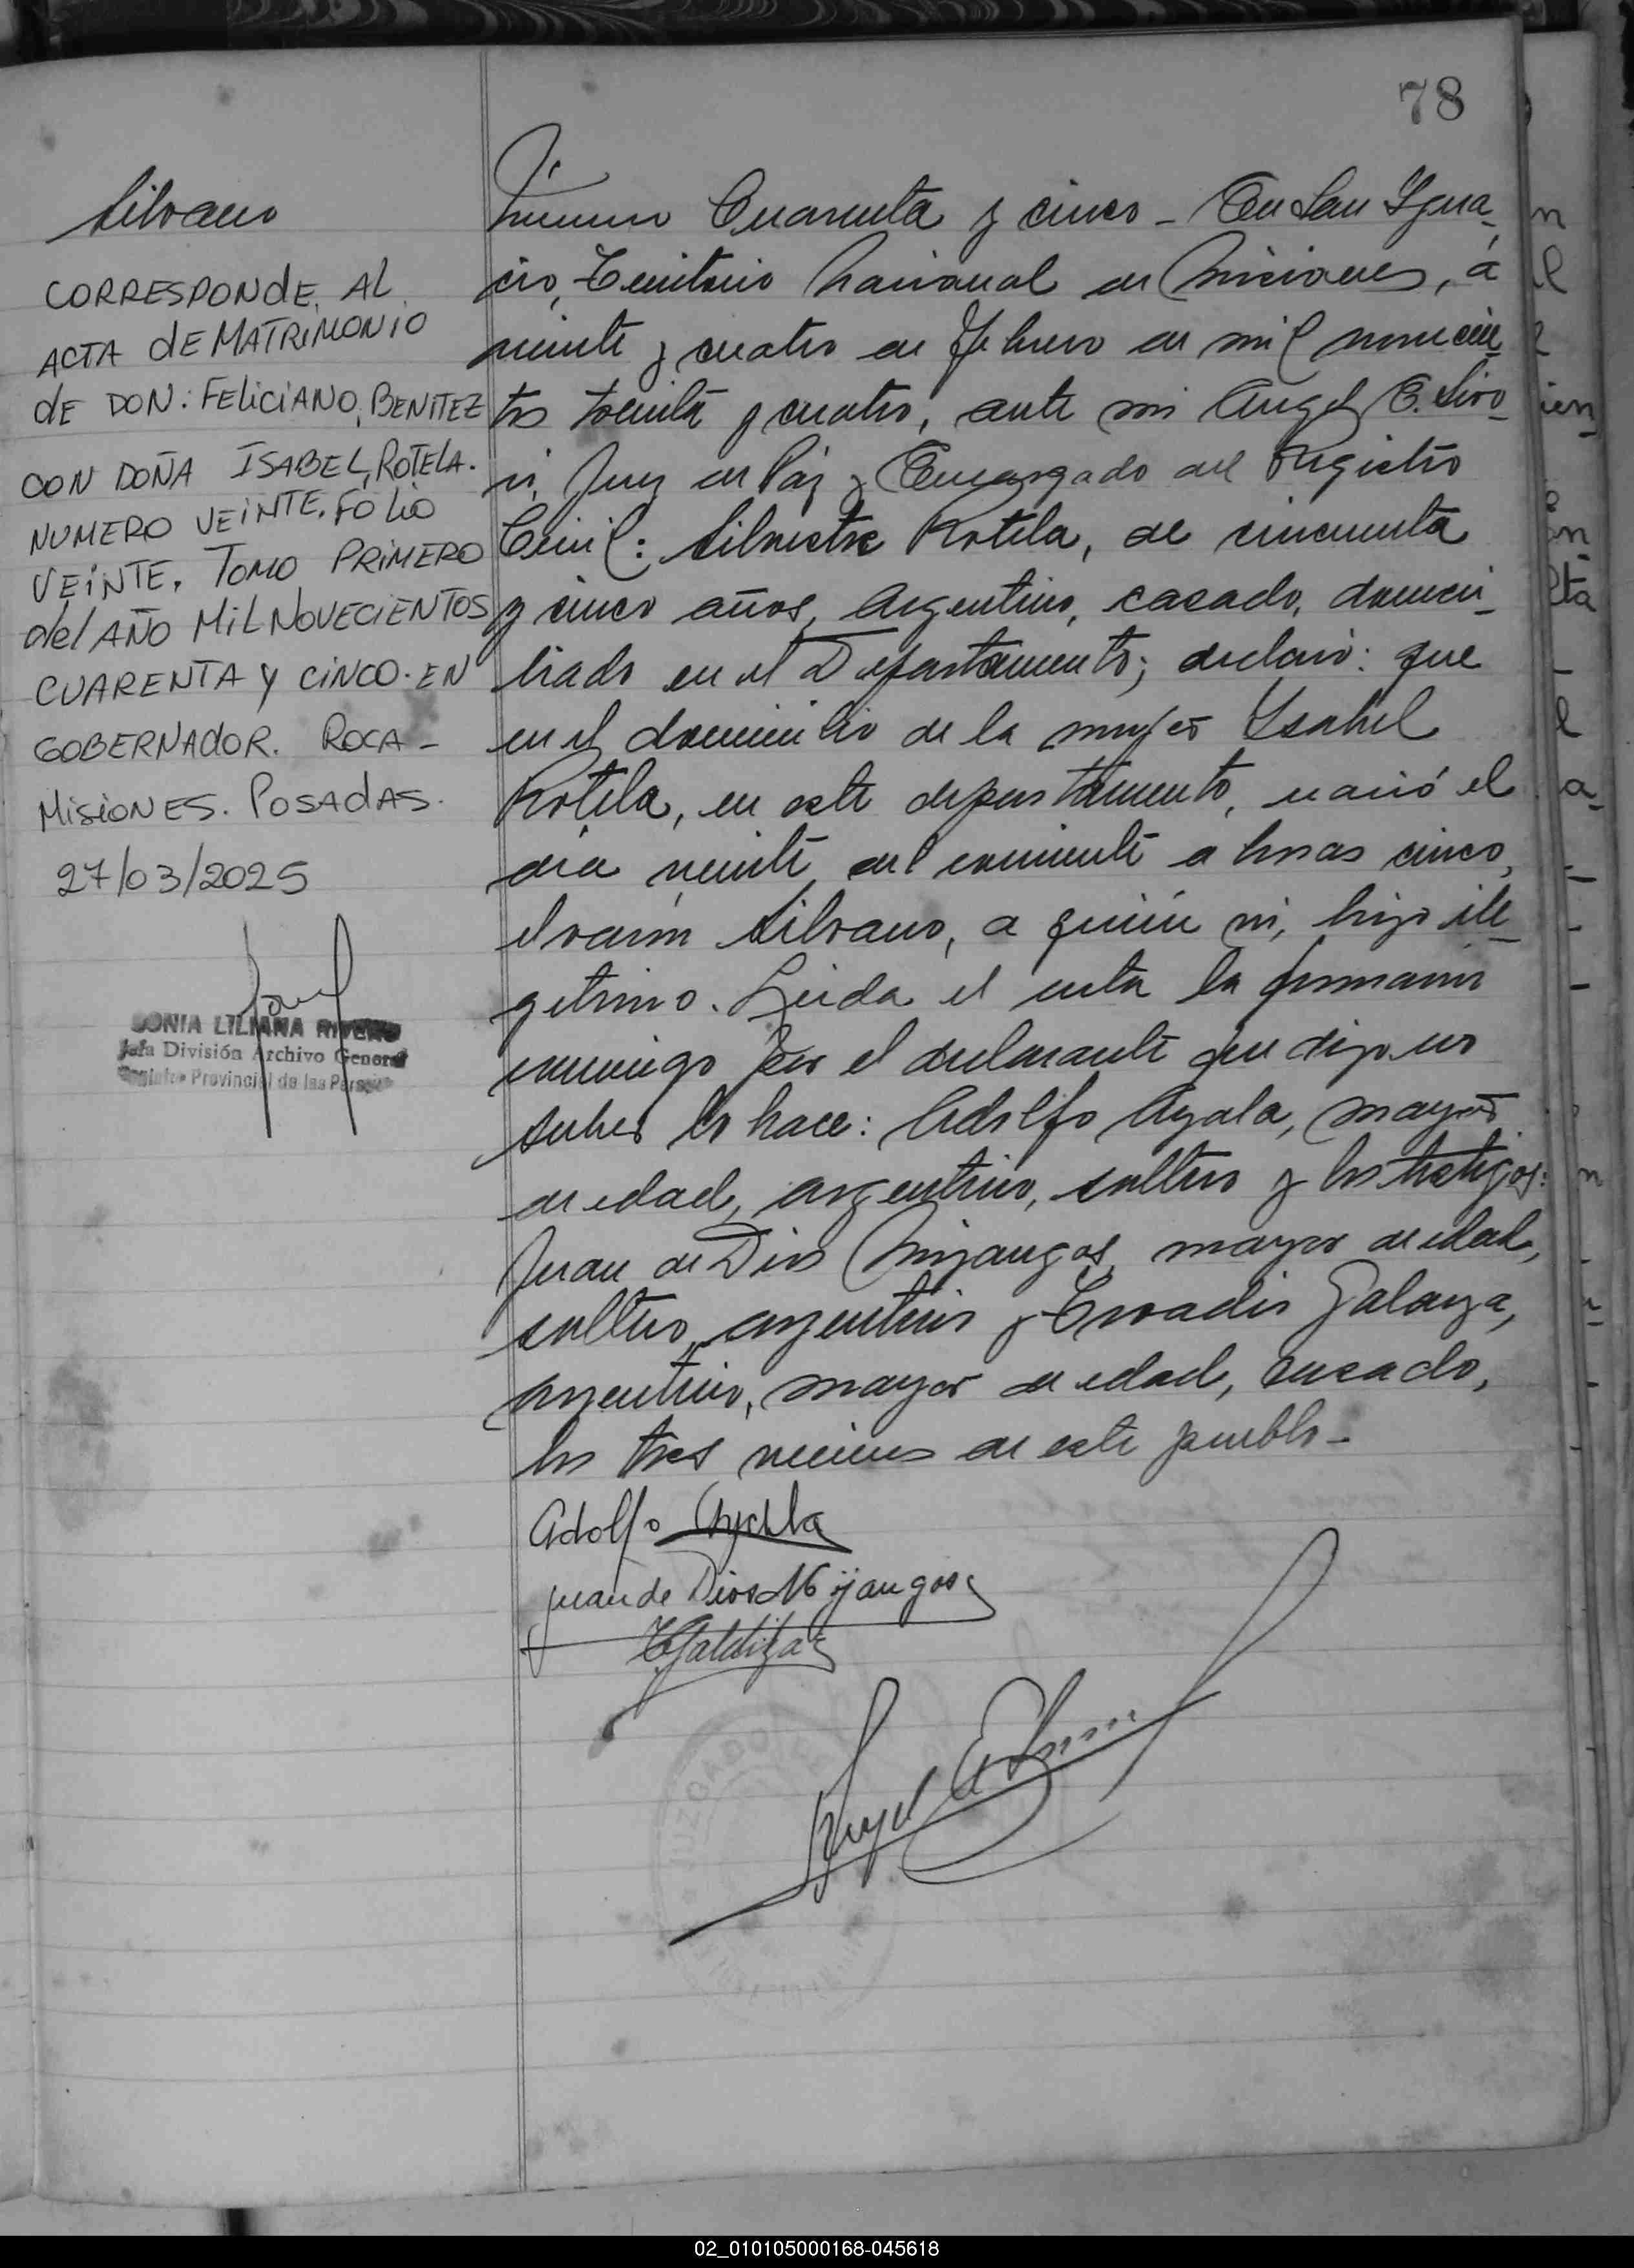 78
Silvano
CORRESPONDE AL
ACTA dE MATRIMONIO
dE DON: FELICIANO, BENITEZ
CON DOÑA ISABEL, ROTELA.
NUMERO VEINTE. FOLIO
VEINTE. TOMO PRIMERO
del AÑO MIL NOVECIENTOS
CUARENTA Y CINCO. EN
GOBERNADOR. ROCA -
MISIONES. POSADAS.
27/03/2025
SONIA LILIANA RIVERO
Jefa División Archivo General
Registro Provincial de las Personas
Número Cuarenta y cinco - En San Ygna-
cio, Territorio Nacional de Misiones, á
veinte y cuatro de Febrero de mil novecien
tos treinta y cuatro, ante mi Angel E.
Juez de Paz y Encargado del Registro
Civil: Silvestre Rotela, de cincuenta
y cinco años, Argentino, casado, domici-
liado en el Departamento; declaró: que
en el domicilio de la mujer Ysabel
Rotela, en este departamento, nació el
día veinte del corriente a horas cinco,
el varón Silvano, a quién vi, hijo ile-
gitimo. Leida el acta la firmaron
conmigo por el declarante que dijo no
saber lo hace: Adolfo Ayala, mayor
de edad, argentino, soltero y los testigos:
Juan de Dios Mijangos, mayor de edad,
soltero, argentino y
argentino, mayor de edad, casado,
los tres vecinos de este pueblo -
Adolfo Ayala
Juan de Dios Mijangos
JUZGADO
02_010105000168-045618